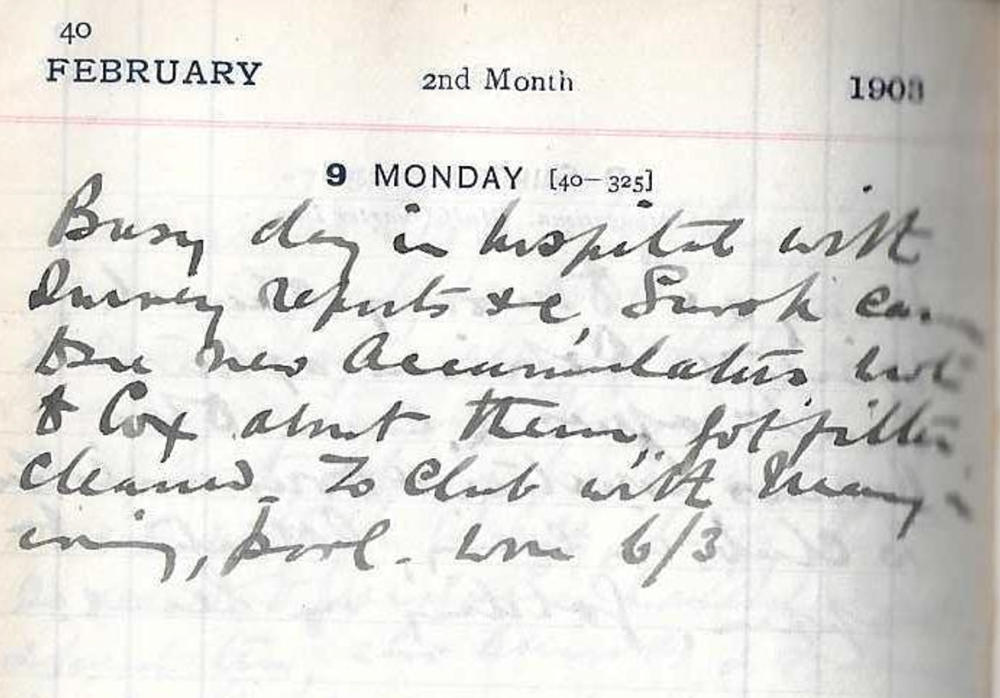 40
FEBRUARY 2nd Month 1903
9 MONDAY [40–325]
Busy day in hospital with
Survey reports &c,
new Accumulators
to Cox about them, got filter
cleaned. To Club with Mary in
evening, pool. Won 6/3